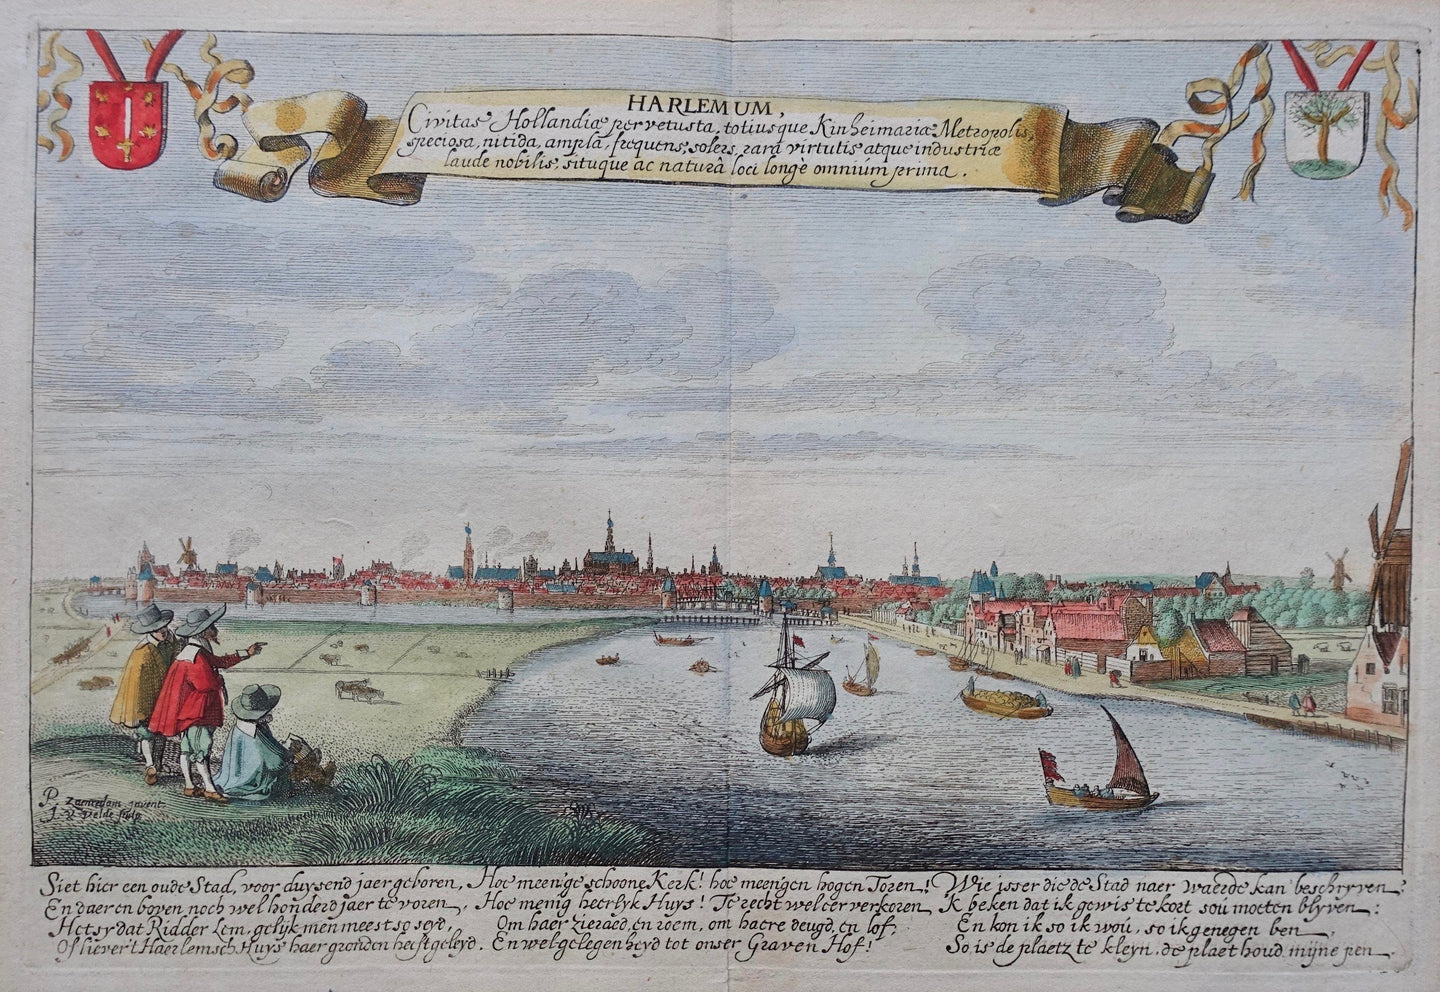 HARLEMUM,
Civitas Hollandiæ pervetusta, totiusque Kinheimariæ Metropolis,
speciosa, nitida, ampla, frequens, solers, rara virtutis atque industriæ
laude nobilis, situque ac naturâ loci longè omnium prima.
P. Zaenredam invent.
I. V. Velde sculp
Siet hier een oude Stad, voor duysend jaer geboren,
En daer en boven noch wel honderd jaer te voren,
Hetsy dat Ridder Lem, gelijk men meest so seyd,
Of liever't Haerlemsch Huys haer gronden heeft geleyd.
Hoe meenige schoone Kerk! hoe meenigen hogen Toren!
Hoe menig heerlyk Huys! Te recht wel eer verkoren
Om haer zieraed, en roem, om haere deugd, en lof,
En welgelegenheyd tot onser Graven Hof!
Wie isser die de Stad naer waerde kan beschryven?
Ik beken dat ik gewis te kort soú moeten blyven:
En kon ik so ik woú, so ik genegen ben,
So is de plaetz te kleyn, de plaet houd mijne pen.